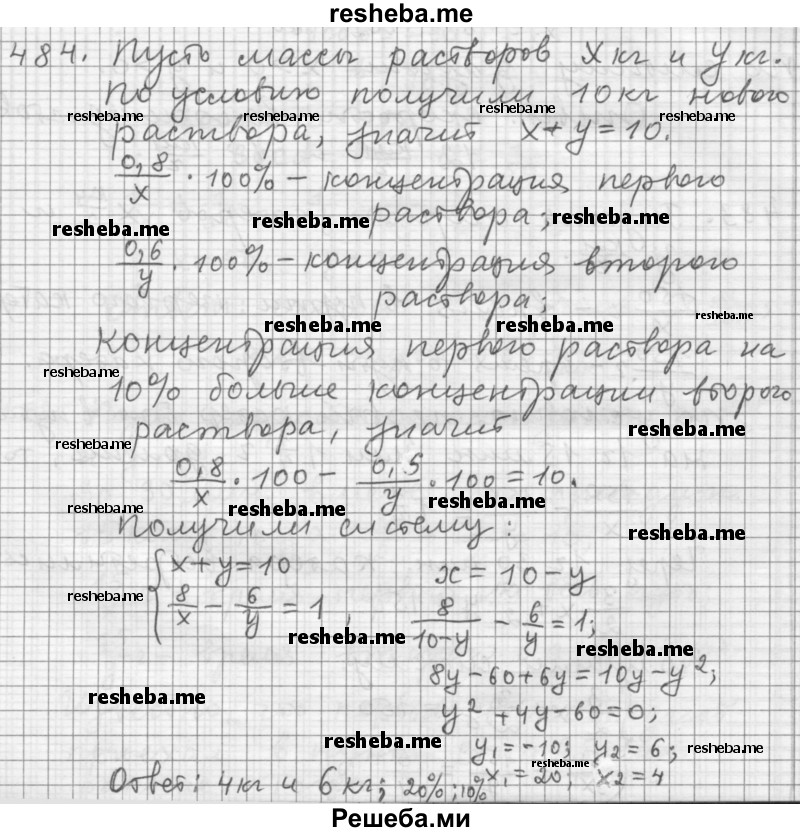 resheba.me
484. Пусть массы растворов x кг и y кг.
По условию получили 10 кг нового
resheba.me resheba.me resheba.me resheba.me
раствора, значит x + y = 10.
0,8/x · 100% – концентрация первого
раствора;
resheba.me resheba.me resheba.me
0,6/y · 100% – концентрация второго
раствора;
resheba.me resheba.me resheba.me
Концентрация первого раствора на
resheba.me
10% больше концентрации второго
раствора, значит
resheba.me resheba.me
0,8/x · 100 – 0,5/y · 100 = 10.
resheba.me resheba.me resheba.me
Получили систему:
resheba.me
{ x + y = 10 x = 10 – y
8/x – 6/y = 1, 8/(10–y) – 6/y = 1;
resheba.me resheba.me resheba.me
8y – 60 + 6y = 10y – y²;
resheba.me
y² + 4y – 60 = 0;
resheba.me
y₁ = –10; y₂ = 6;
resheba.me
resheba.me
Ответ: 4 кг и 6 кг; 20%; 10% x₁ = 20; x₂ = 4
Решеба.ми